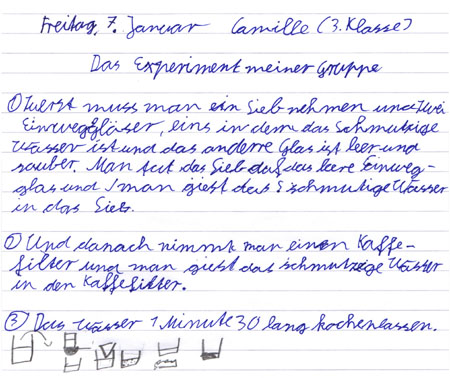 Freitag, 7. Januar Camille (3. Klasse)
Das Experiment meiner Gruppe
① Zuerst muss man ein Sieb nehmen und zwei
Einweggläser, eins in dem das schmutzige
Wasser ist und das anderre Glas ist leer und
sauber. Man tut das Sieb auf das leere Einweg-
glas und man giest das schmutzige Wasser
in das Sieb.
② Und danach nimmt man einen Kaffe-
filter und man giest das schmutzige Wasser
in den Kaffefilter.
③ Das Wasser 1 Minute 30 lang kochenlassen.